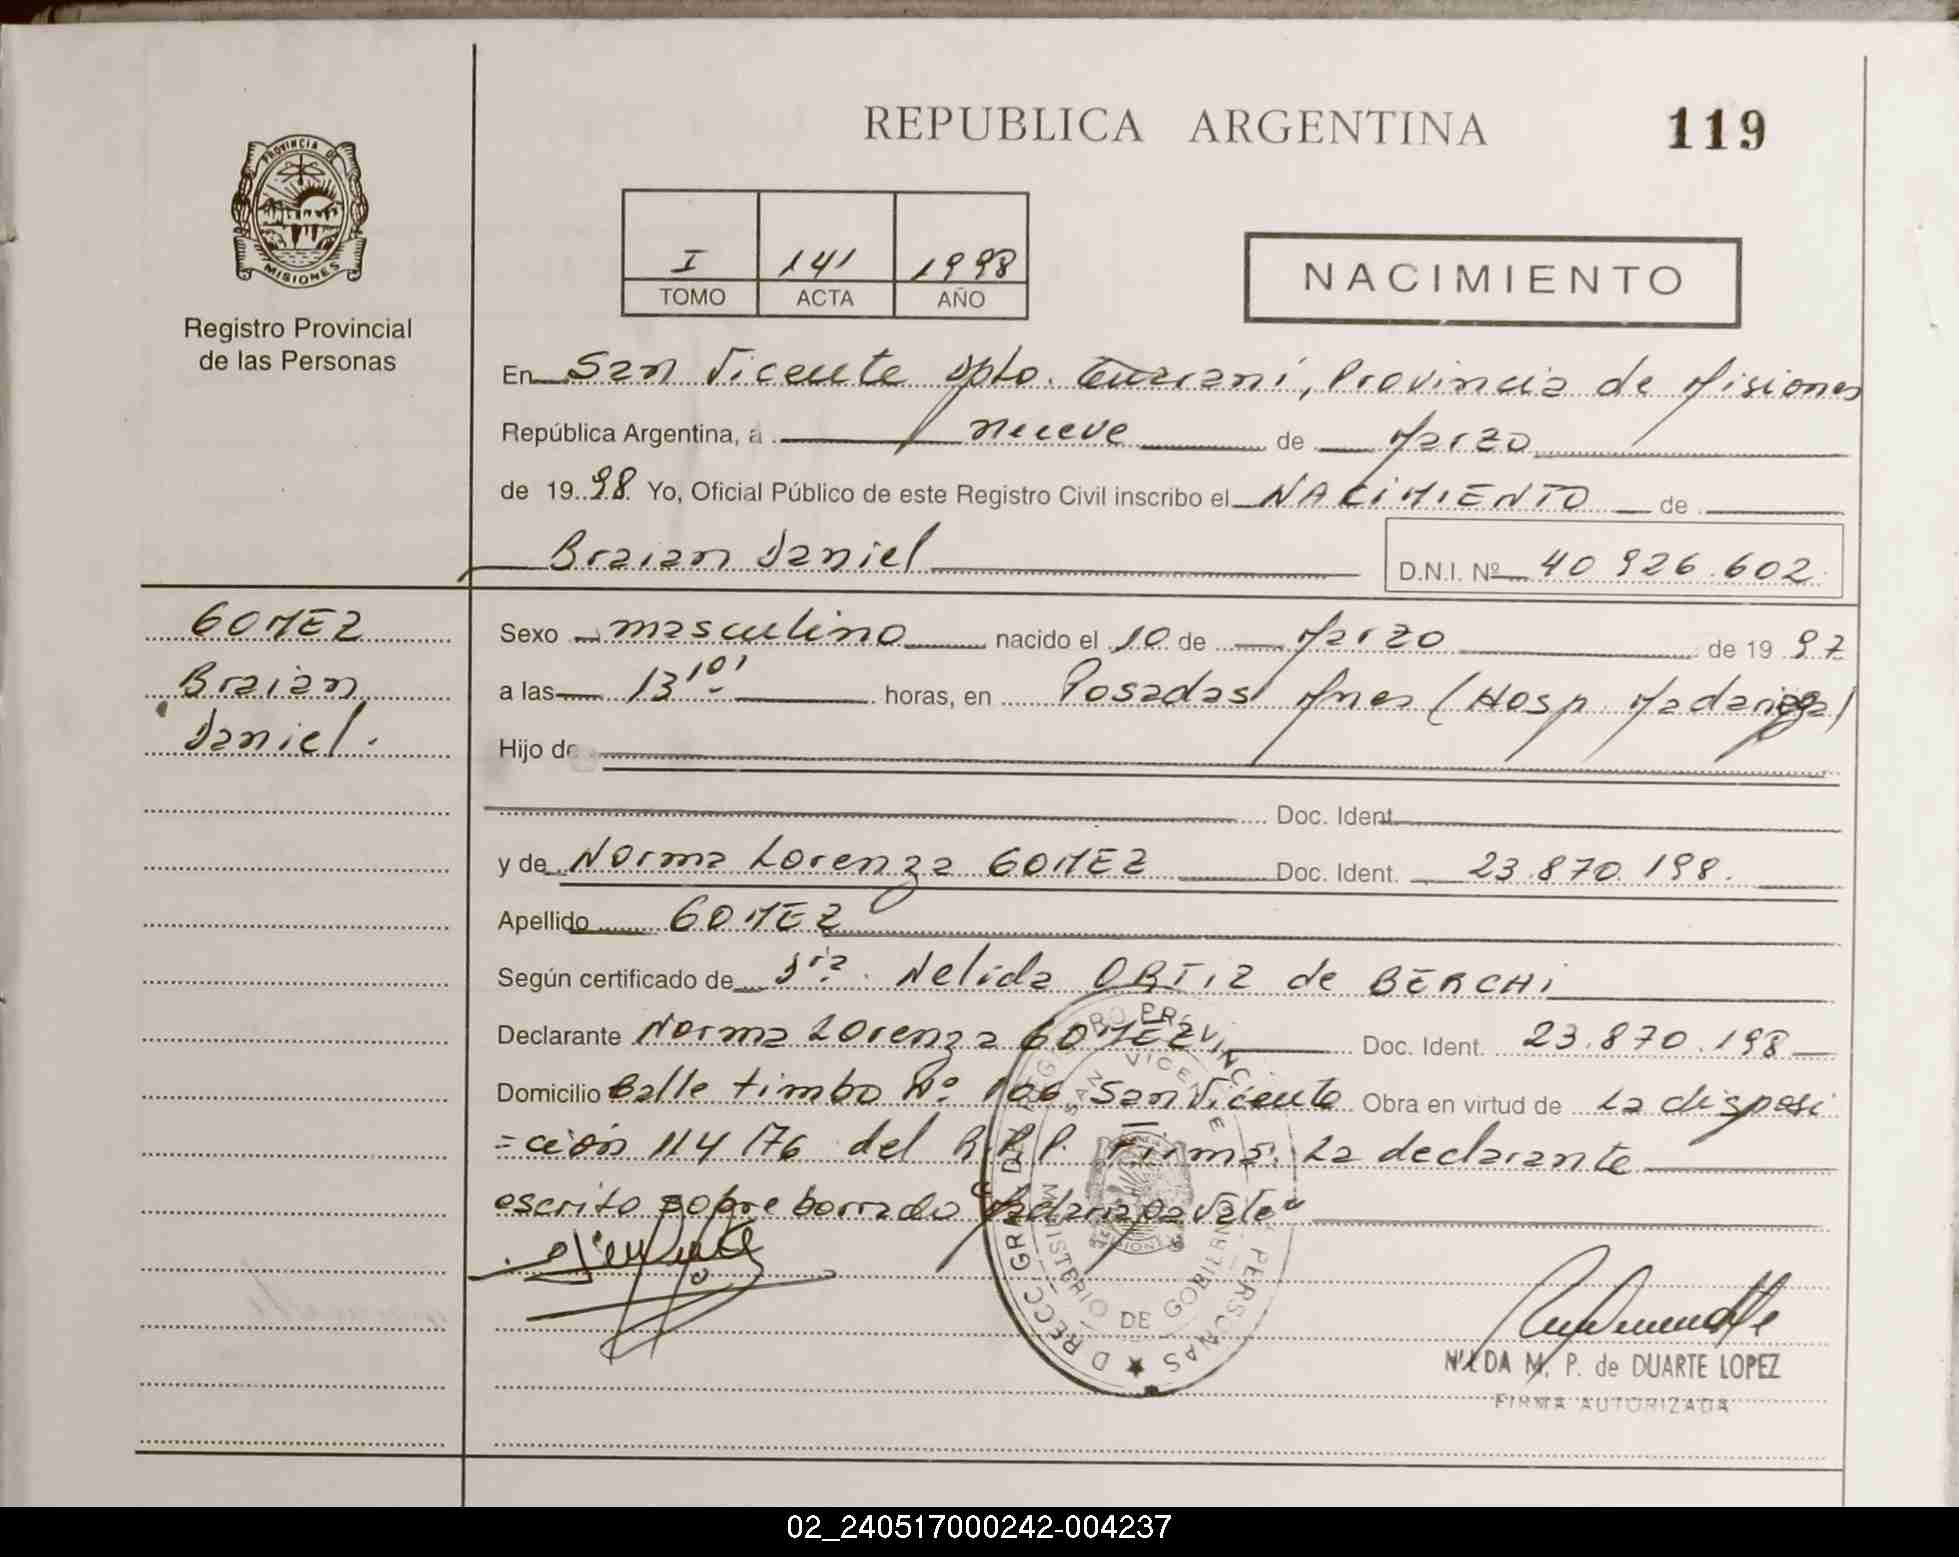 REPUBLICA ARGENTINA
119
PROVINCIA DE
MISIONES
Registro Provincial
de las Personas
I 141 1998
TOMO ACTA AÑO
NACIMIENTO
En San Vicente Dpto. Guaraní, Provincia de Misiones
República Argentina, a nueve de Marzo
de 1998 Yo, Oficial Público de este Registro Civil inscribo el NACIMIENTO de
Braian Daniel D.N.I. Nº 40 926.602
GOMEZ
Braian
Daniel.
Sexo masculino nacido el 10 de Marzo de 1997
a las 13 10' horas, en Posadas Mnes (Hosp. Madariaga)
Hijo de
Doc. Ident.
y de Norma Lorenza GOMEZ Doc. Ident. 23.870.198.
Apellido GOMEZ
Según certificado de Dra. Nelida ORTIZ de BERCHI
Declarante Norma Lorenza GOMEZ Doc. Ident. 23.870.198
Domicilio Calle timbo Nº 106 San Vicente Obra en virtud de La disposi
=ción 114/76 del R.P.P. Firma: La declarante
escrito sobre borrado "Madariaga Vale"
SAN VICENTE
MINISTERIO DE GOBIERNO
NILDA M. P. de DUARTE LOPEZ
FIRMA AUTORIZADA
02_240517000242-004237